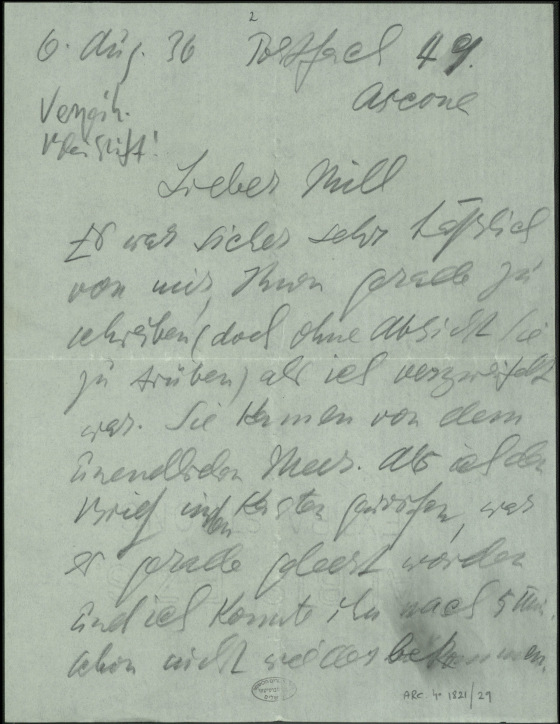 2
6. Aug. 36 Postfach 49.
Ascona
Verzeih.
Bleistift!
Lieber Mill
Es war sicher sehr häßlich
von mir, Ihnen gerade zu
schreiben (doch ohne Absicht Sie
zu trüben) als ich verzweifelt
war. Sie kamen von dem
unendlichen Meer. Als ich den
Brief in den Kasten geworfen, war
er gerade geleert worden
und ich konnte ihn nach 5 Min.
schon nicht wieder bekommen.
ARC. 4° 1821/29